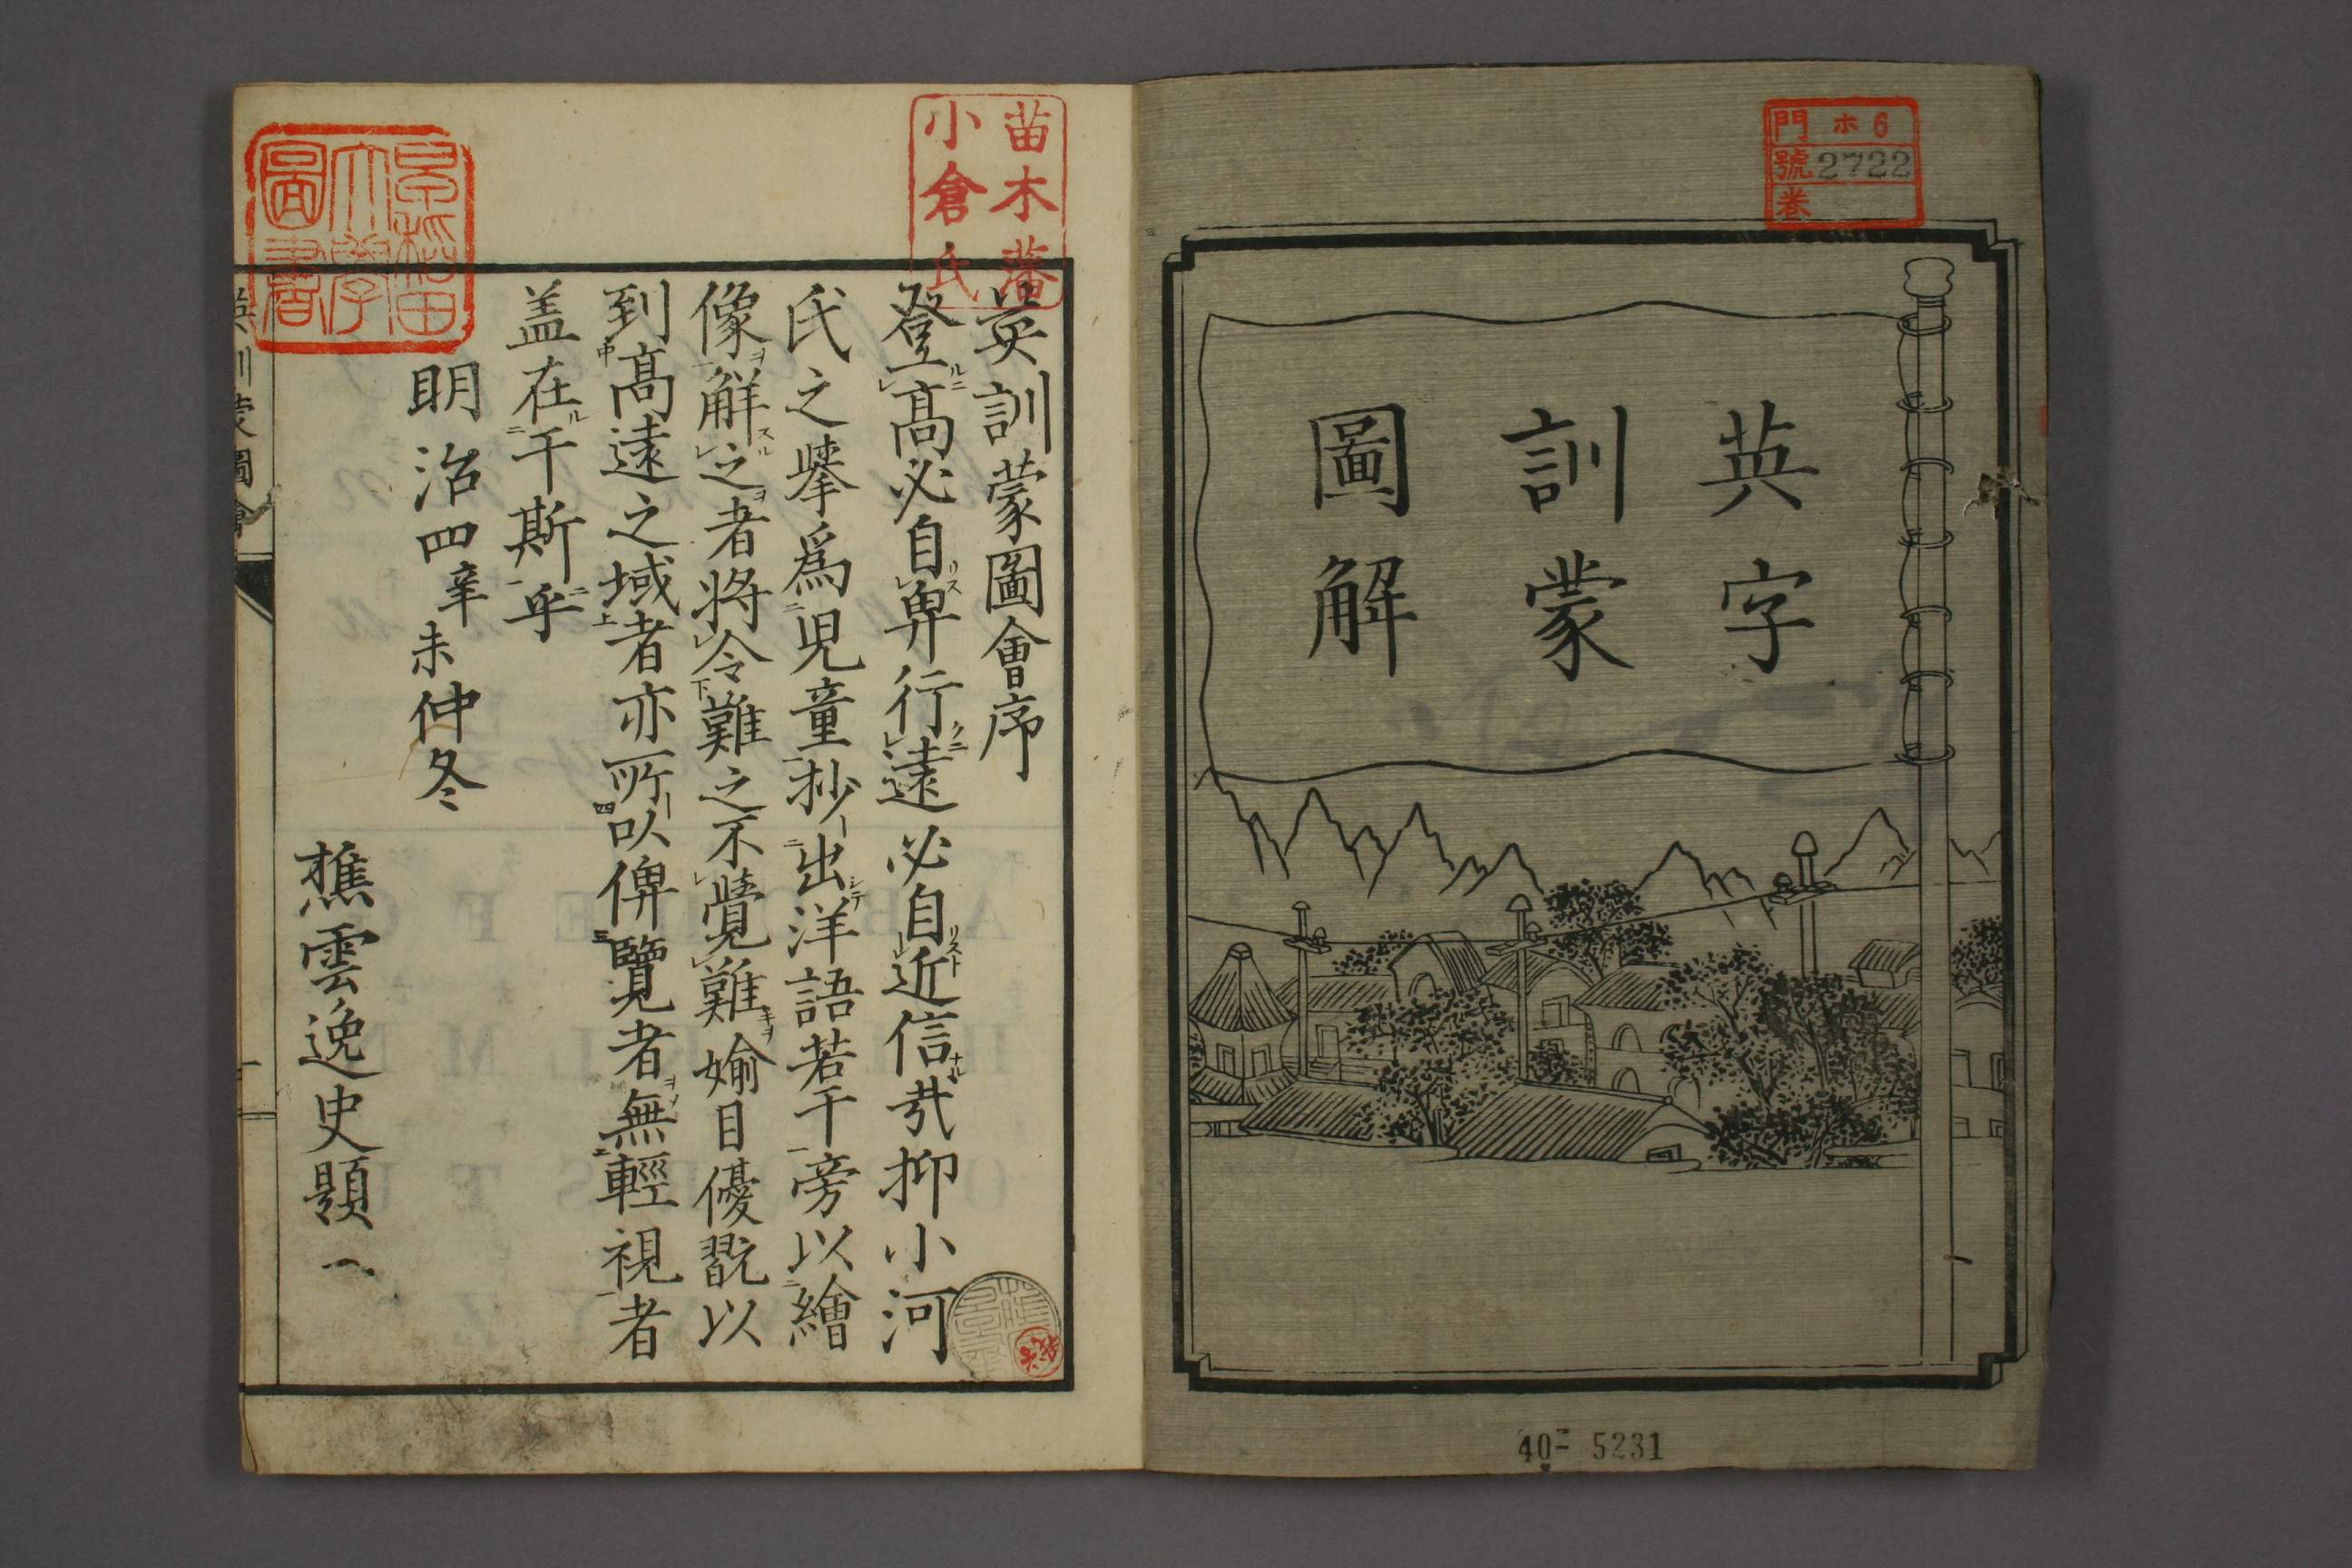 門 ホ6
號 2722
卷
英字
訓蒙
圖解
40- 5231
苗木藩
小倉氏
英訓蒙圖會序
登高必自卑行遠必自近信哉抑小河
氏之擧爲児童抄出洋語若干旁以繪
像解之者将令難之不覺難媮目優翫以
到髙遠之域者亦所以俾覽者無輕視者
盖在于斯乎
明治四辛未仲冬
樵雲逸史題
早稲田
大學
圖書
英訓蒙圖會
一